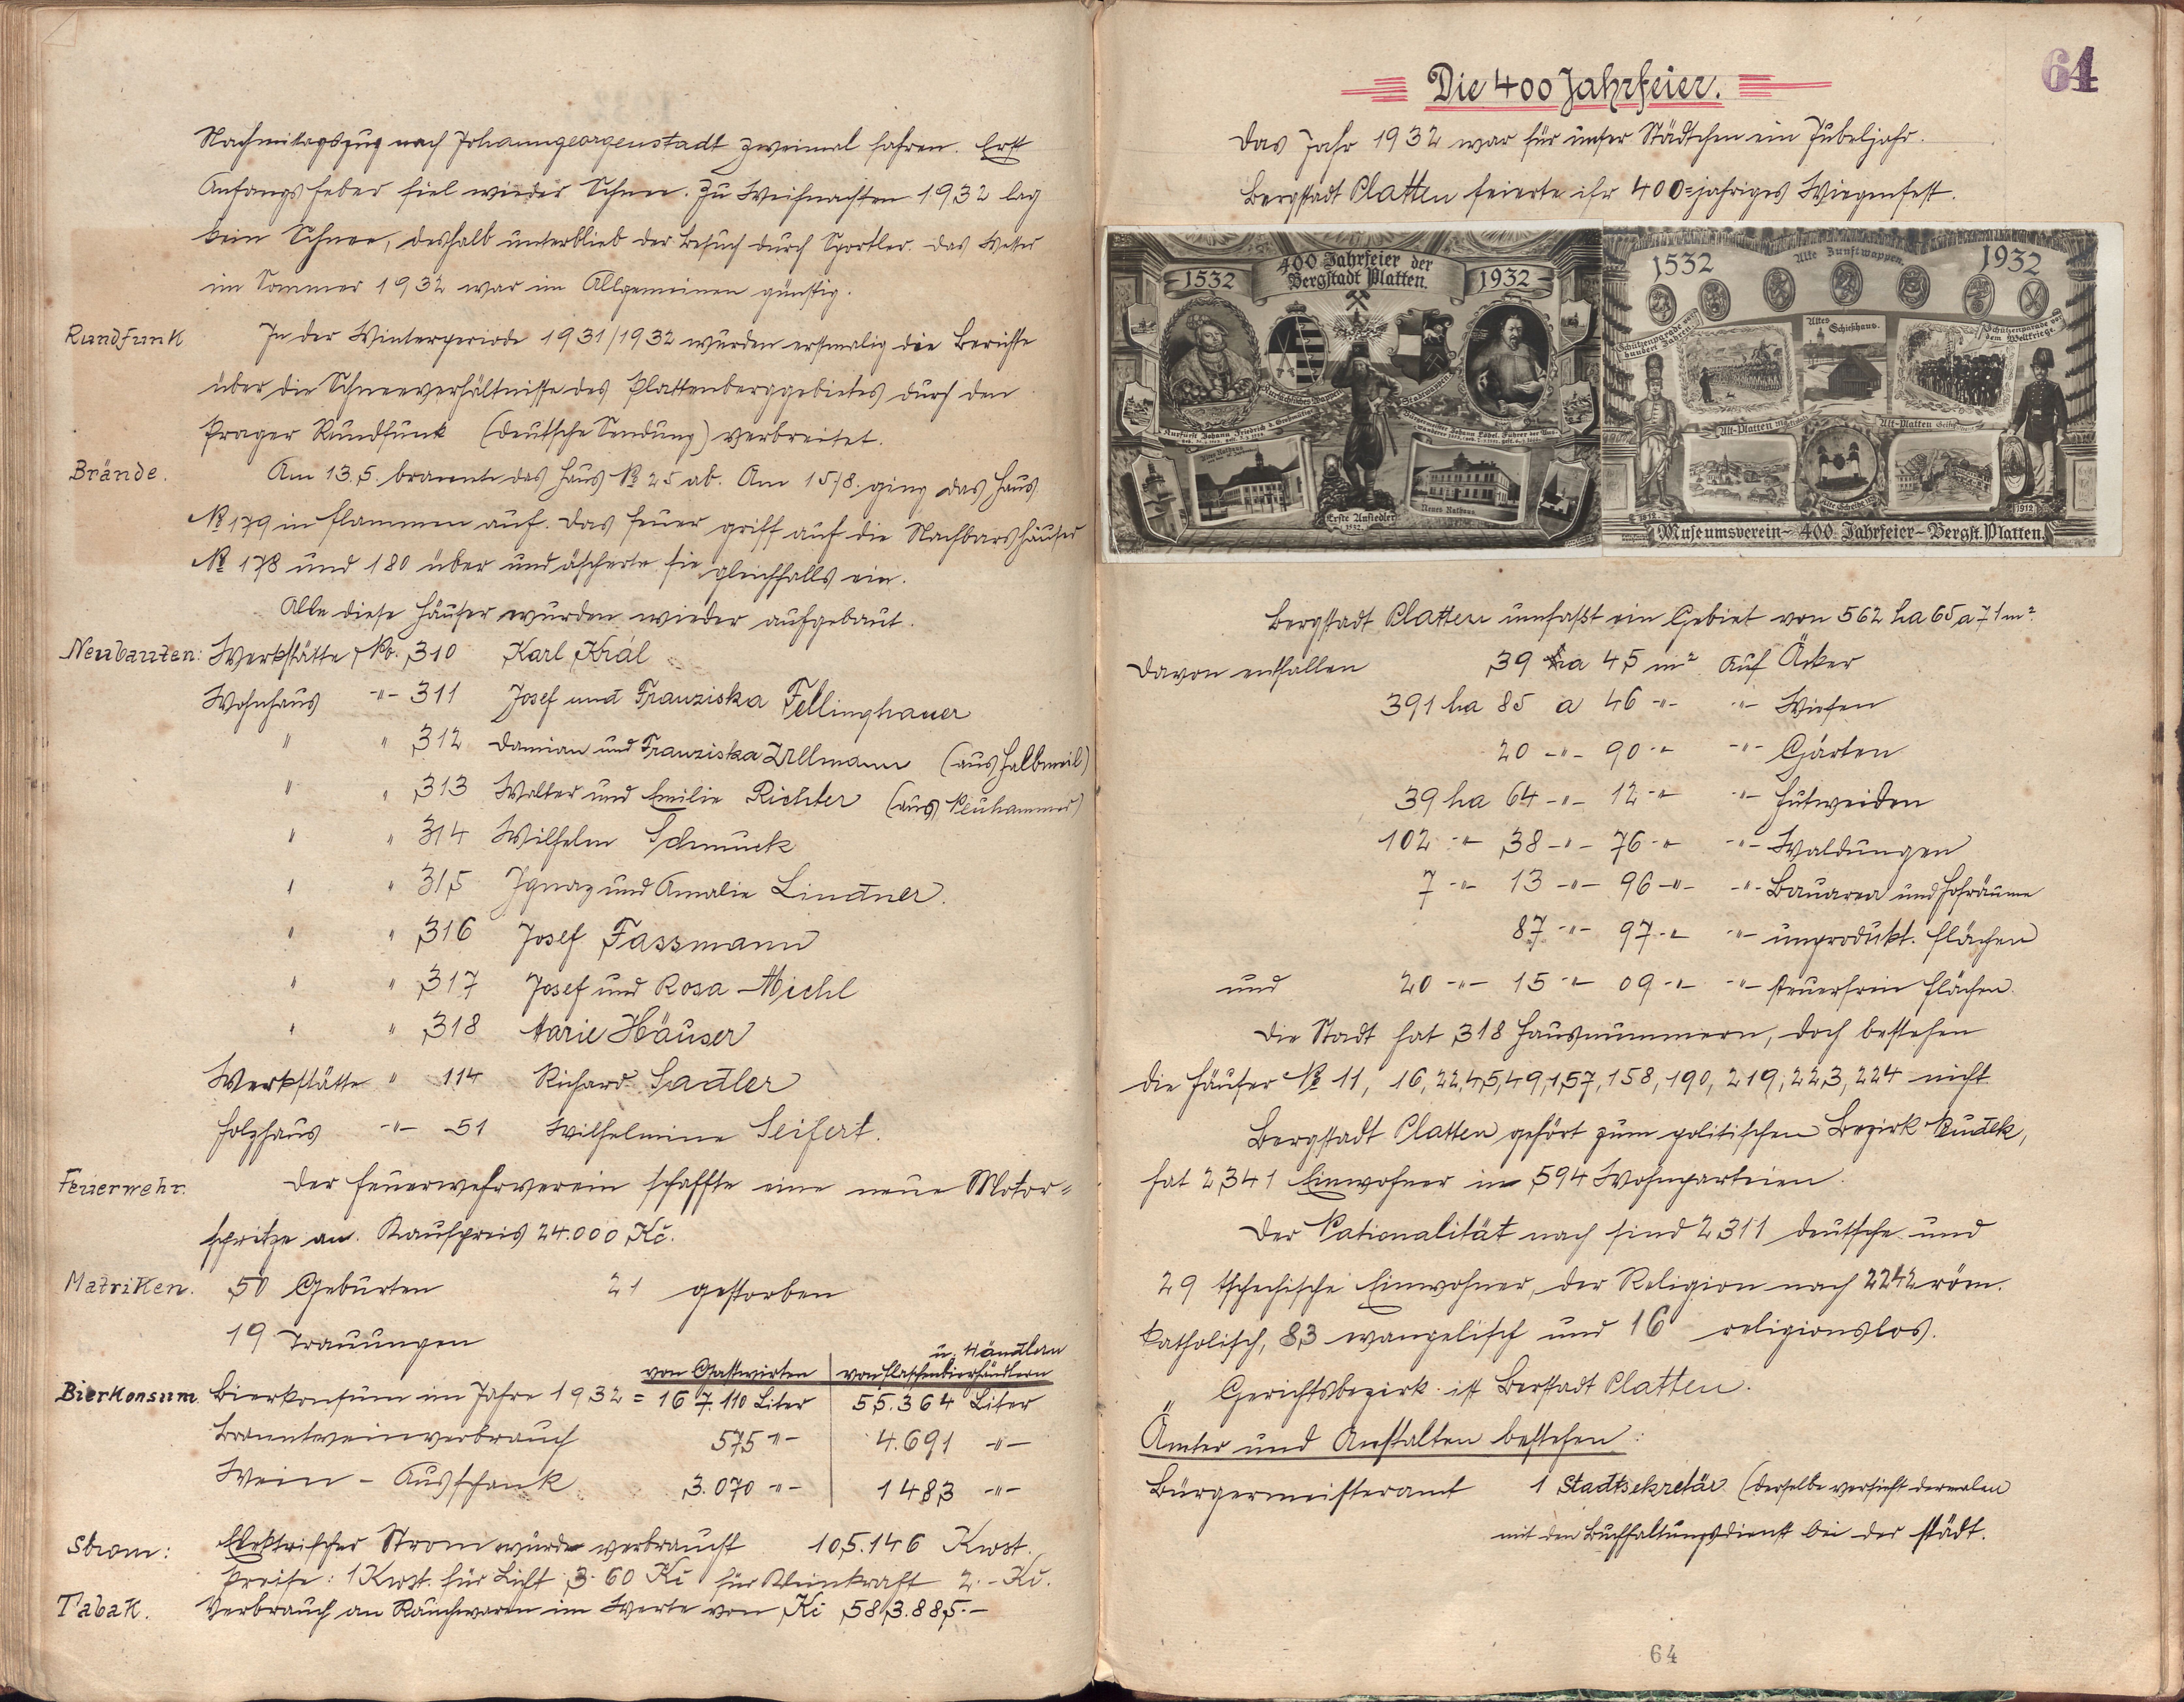 Nachmitagszug nach Johanngeorgenstadt zweimal fahren. Erst
Anfangs feber fiel wieder Schnee. Zu Weihnachten 1932 lag
kein Schnee, deshalb unterblieb der Besuch durch Sportler. Das Wetter
im Sommer 1932 war im Allgemeinen günstig.
Rundfunk In der Winterperiode 1931/1932 wurden erstmalig die Berichte
über die Schneeverhältnisse des Plattenberggebietes durch den
Prager Rundfunk (deutsche Sendung) verbreitet.
Brände. Am 13.5. brannte das Haus № 25 ab. Am 15/8. ging das Haus
№ 179 in Flammen auf. Das Feuer griff auf die Nachbarshäuser
№ 178 und 180 über und äscherte sie gleichfalls ein.
Alle diese Häuser wurden wieder aufgebaut.
Neubauten: Werkstätte No. 310 Karl Král
Wohnhaus -"- 311 Josef und Franziska Fellinghauer
" " 312 Damian und Franziska Ullmann (aus Halbmeil)
" " 313 Walter und Emilie Richter (aus Neuhammer)
" " 314 Wilhelm Schmuck
" " 315 Ignaz und Amalie Lindner.
" " 316 Josef Fassmann
" " 317 Josef und Rosa Michl
" " 318 Marie Häuser
Werkstätte " 114 Richard Sadler
Holzhaus -"- 51 Wilhelmine Seifert.
Feuerwehr. Der Feuerwehrverein schaffte eine neue Motor-
spritze an. Kaufpreis 24.000 Kč.
Matriken. 50 Geburten 21 gestorben
19 Trauungen
u. Händlern
von Gastwirten von Flaschenbierhändlern
Bierkonsum. Bierkonsum im Jahre 1932 = 167.110 Liter 55.364 Liter
Branntweinverbrauch 575 -"- 4.691 -"-
Wein - Ausschank 3.070 -"- 1483 -"-
Strom: Elektrischer Strom wurde verbraucht 105.146 Kwst.
Preise: 1 Kwst. für Licht 3.60 Kč für Kleinkraft 2.- Kč.
Tabak. Verbrauch an Rauchwaren im Werte von Kč 583.885.-
64
Die 400 Jahrfeier.
Das Jahr 1932 war für unser Städtchen ein Jubeljahr.
Bergstadt Platten feierte ihr 400=jahriges Wiegenfest.
1532 400 Jahrfeier der Bergstadt Platten. 1932
Stadtwappen
Neues Rathaus
Erste Ansiedler
1532.
1532 Alte Zunftwappen. 1932
Schützenparade vor hundert Jahren
Altes Schießhaus.
Schützenparade vor dem Weltkriege
Alt-Platten
Alt-Platten
1812
1912
Museumsverein - 400 Jahrfeier - Bergst. Platten.
Bergstadt Platten umfaßt ein Gebiet von 562 ha 65 a 71 m²
Davon entfallen 39 ha 45 m² auf Äcker
391 ha 85 a 46 -"- -"- Wiesen
20 -"- 90 -"- -"- Gärten
39 ha 64 -"- 12 -"- -"- Hutweiden
102 -"- 38 -"- 76 -"- -"- Waldungen
7 -"- 13 -"- 96 -"- -"- Bauarea und Hofräume
87 -"- 97 -"- -"- unprodukt. Flächen
und 20 -"- 15 -"- 09 -"- -"- steuerfreie Flächen.
Die Stadt hat 318 Hausnummern, doch bestehen
die Häuser № 11, 16, 22, 45, 49, 157, 158, 190, 219, 223, 224 nicht.
Bergstadt Platten gehört zum politischen Bezirk Neudek,
hat 2341 Einwohner in 594 Wohnparteien.
Der Nationalität nach sind 2311 deutsche und
29 tschechische Einwohner, der Religion nach 2242 röm.
katholisch, 83 evangelisch und 16 religionslos.
Gerichtsbezirk ist Berstadt Platten.
Ämter und Anstalten bestehen:
Bürgermeisteramt 1 Stadtsekretär (derselbe versieht dermalen
mit den Buchhaltungsdienst bei der städt.
64